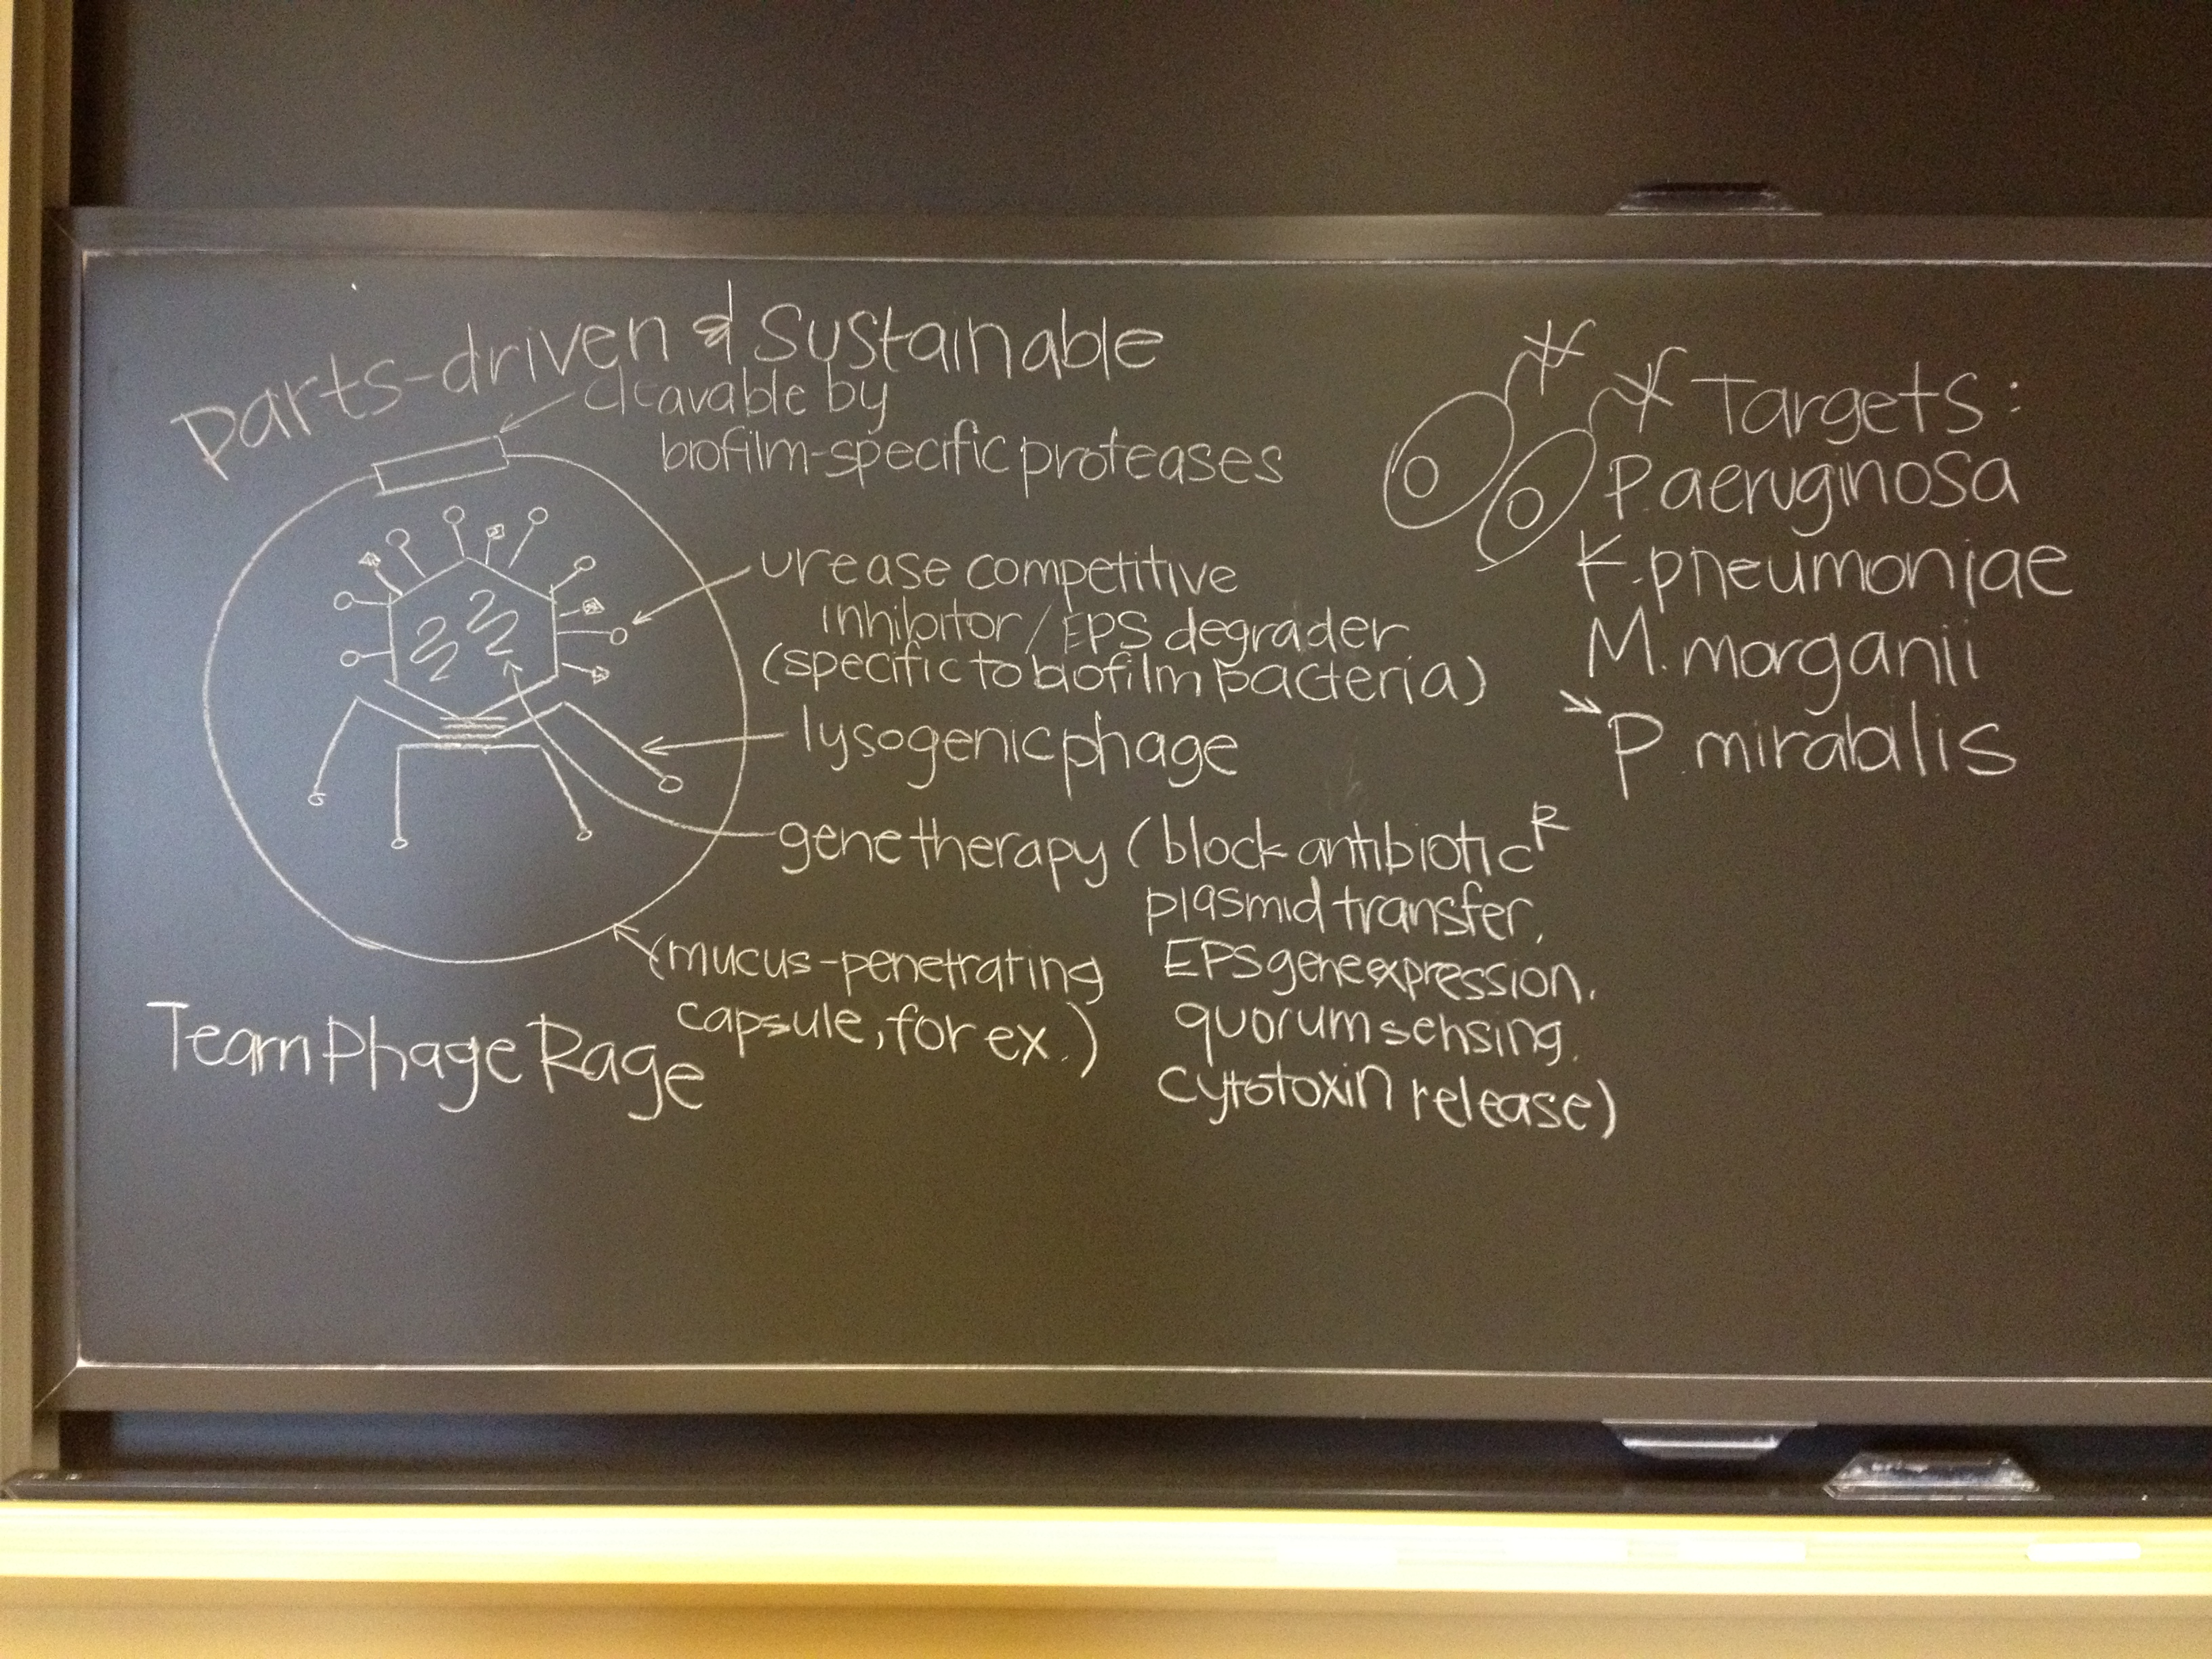 parts-driven & Sustainable
cleavable by
biofilm-specific proteases
urease competitive
inhibitor/EPS degrader
(specific to biofilm bacteria)
lysogenic phage
gene therapy (block antibiotic R
plasmid transfer,
EPS gene expression,
quorum sensing,
cytotoxin release)
(mucus-penetrating
capsule, for ex.)
Team Phage Rage
Targets:
P. aeruginosa
K. pneumoniae
M. morganii
P. mirabalis